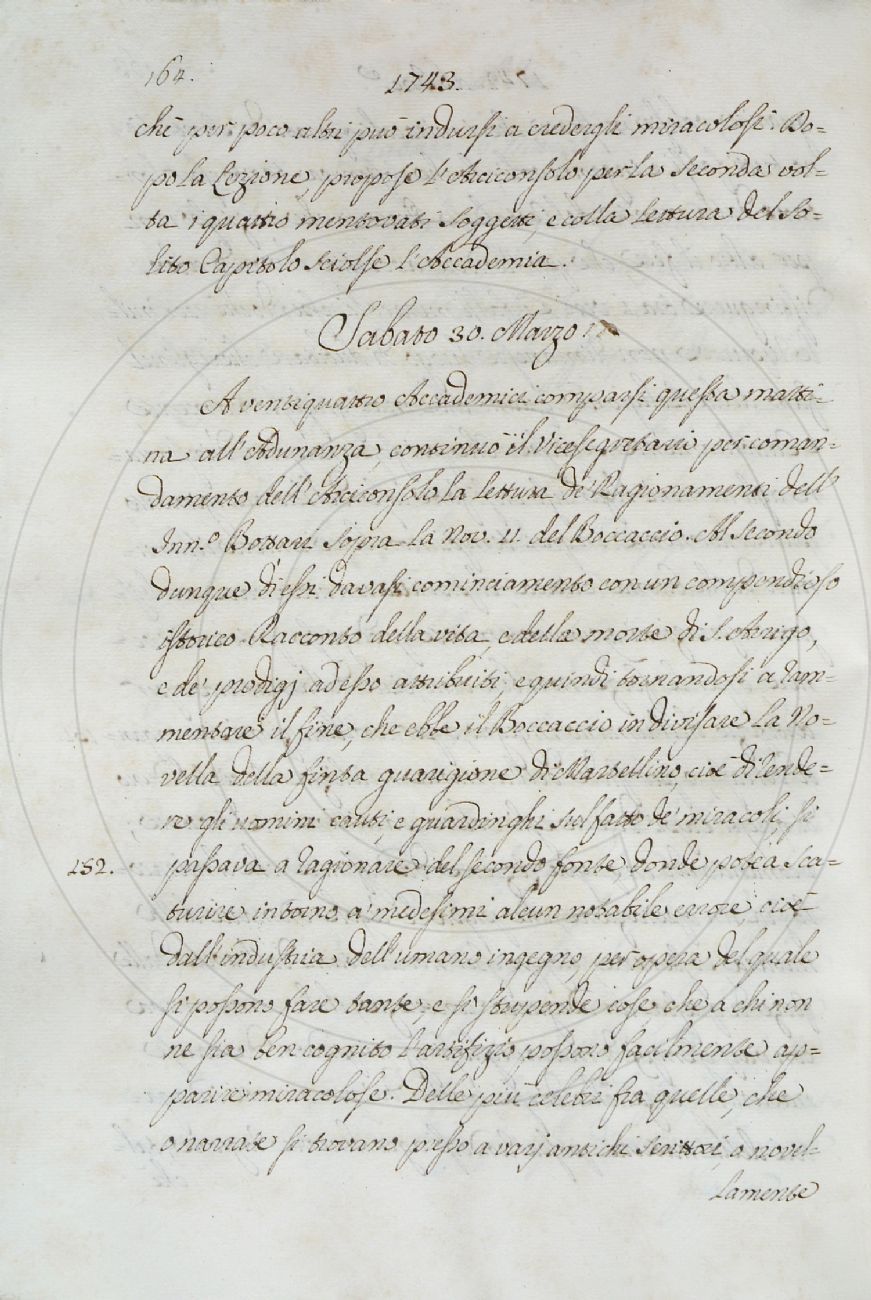 164.
1743.
che per poco altri può indursi a credergli miracolosi. Do=
po la Lezione, propose l'Arciconsolo per la seconda vol=
ta i quattro mentovati Soggetti, e colla lettura del So=
lito Capitolo sciolse l'Accademia.
Sabato 30. Marzo
A ventiquattro Accademici comparsi questa matti=
na all'Adunanza, continuò il Vicesegretario per coman=
damento dell'Arciconsolo la lettura de' Ragionamenti dell'
Inn.º Bottari sopra la Nov. 11. del Boccaccio. Al secondo
dunque di essi davasi cominciamento con un compendioso
istorico Racconto della vita, e della morte di S. Arrigo,
e de' prodigj ad esso attribuiti, e quindi tornandosi a ram=
mentare il fine, che ebbe il Boccaccio in divisare la No=
vella della finta guarigione di Martellino, cioè di rende=
re gli uomini cauti, e guardinghi sul fatto de' miracoli, si
182. passava a ragionare del secondo fonte, donde potea sca=
turire intorno a' medesimi alcun notabile errore, cioè
dall'industria dell'umano ingegno, per opera del quale
si possono fare tante, e sì stupende cose che a chi non
ne sia ben cognito l'artifizio possono facilmente ap=
parire miracolose. Delle più celebri fra quelle, che
o narrate si trovano presso a varj antichi scrittori, o novel=
lamente